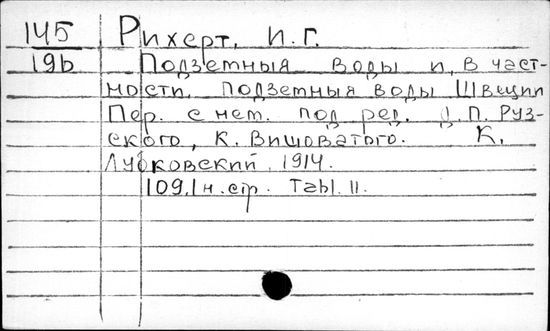 145 Рихерт, И.Г.
196 Подземныя воды и, в част-
ности, подземныя воды Швеции
Пер. с нем. под ред. Д.П. Руз-
ского, К. Вишоватого. К.
Лубковский, 1914.
109,1 н. стр. Табл. 11.